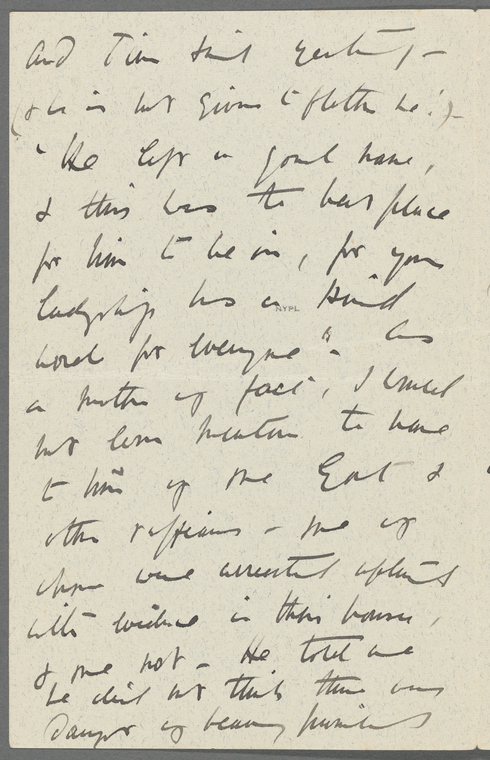 and Tim said yesterday –
(& he is not given to flatter me!) –
"He left a good name,
& this was the best place
for him to be in, for your
ladyship has a kind
NYPL
word for everyone" – As
a matter of fact, I could
not even mention the name
to him of one &
other ruffians – some of
whom were arrested
with evidence in their houses,
& some not – He told me
he did not think there was
danger of being